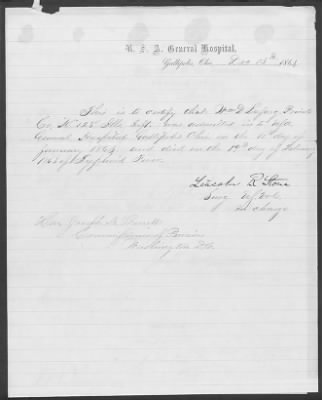 U. S. A. General Hospital,
Gallipolis, Ohio, Dec 1864
This is to certify that Wm D Private
Co. K. 122 Ills Inft. was admitted in U.S.A
General Hospital Gallipolis Ohio on the day of
January 1864 and died on the 12th day of February
of Typhoid Fever
Lincoln R Stone
Surg U.S. Vols.
in charge
Hon Joseph H. Barrett
Commissioner of Pensions
Washington D.C.